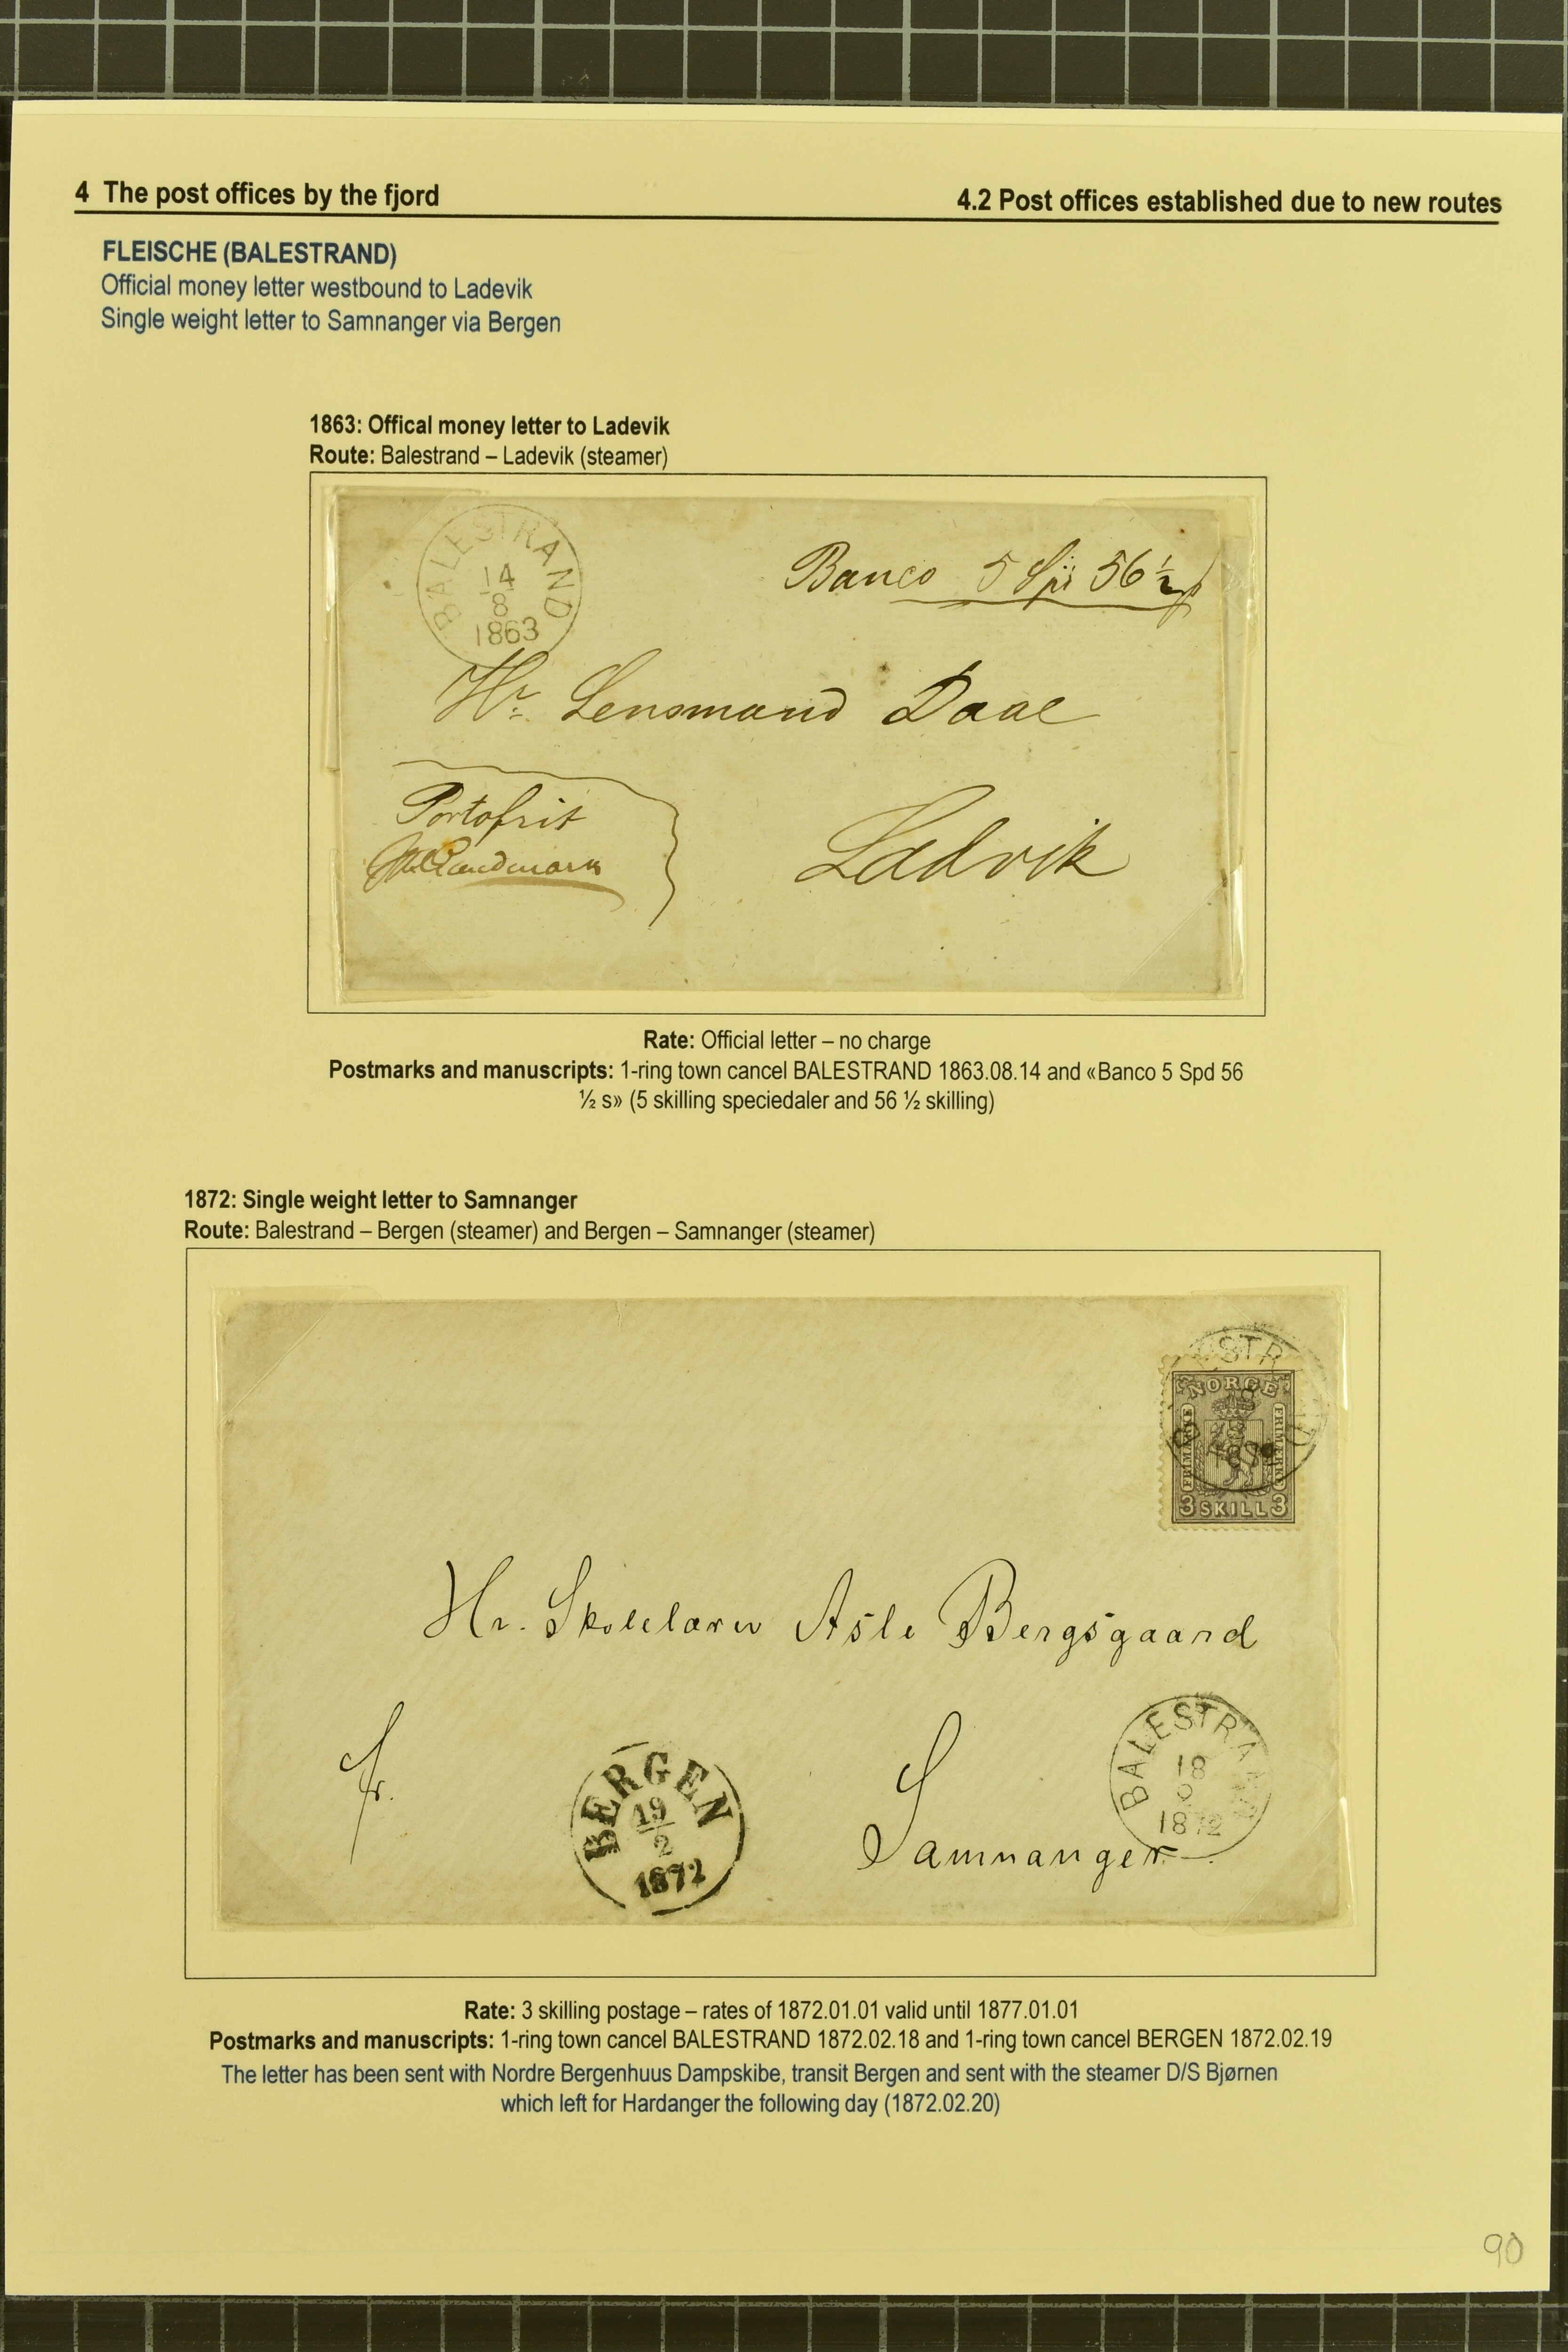 4 The post offices by the fjord
4.2 Post offices established due to new routes
FLEISCHE (BALESTRAND)
Official money letter westbound to Ladevik
Single weight letter to Samnanger via Bergen
1863: Offical money letter to Ladevik
Route: Balestrand – Ladevik (steamer)
BALESTRAND
14
8
1863
Banco 5 Spd 56 ½ s
Hr. Lensmand Daae
Portofrit
Landmark
Ladvik
Rate: Official letter – no charge
Postmarks and manuscripts: 1-ring town cancel BALESTRAND 1863.08.14 and «Banco 5 Spd 56
½ s» (5 skilling speciedaler and 56 ½ skilling)
1872: Single weight letter to Samnanger
Route: Balestrand – Bergen (steamer) and Bergen – Samnanger (steamer)
NORGE
FRIMÆRKE
FRIMÆRKE
3 SKILL 3
Hr. Skolelærer Asle Bergsgaard
fr.
BERGEN
19
2
1872
BALESTRAND
18
1872
Samnanger
Rate: 3 skilling postage – rates of 1872.01.01 valid until 1877.01.01
Postmarks and manuscripts: 1-ring town cancel BALESTRAND 1872.02.18 and 1-ring town cancel BERGEN 1872.02.19
The letter has been sent with Nordre Bergenhuus Dampskibe, transit Bergen and sent with the steamer D/S Bjørnen
which left for Hardanger the following day (1872.02.20)
90